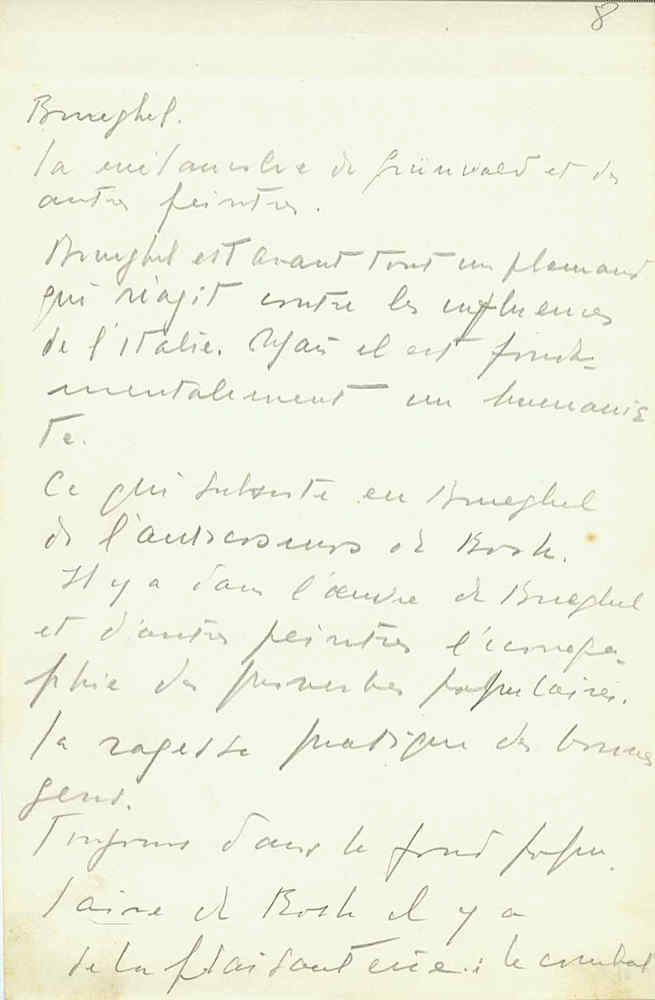 8
Brueghel.
la mélancolie de Grünwald et des
autres peintres.
Brueghel est avant tout un flamand
qui réagit contre les influences
de l'Italie. Mais il est fonda-
mentalement un humanis
te.
Ce qui subsiste en Brueghel
de l'
de Bosh.
Il y a dans l'œuvre de Brueghel
et d'autres peintres l'iconogra-
phie des proverbes populaires.
la sagesse pratique des bonnes
gens.
Toujours dans le fond popu.
laire de Bosh il y a
de la plaisanterie : le combat